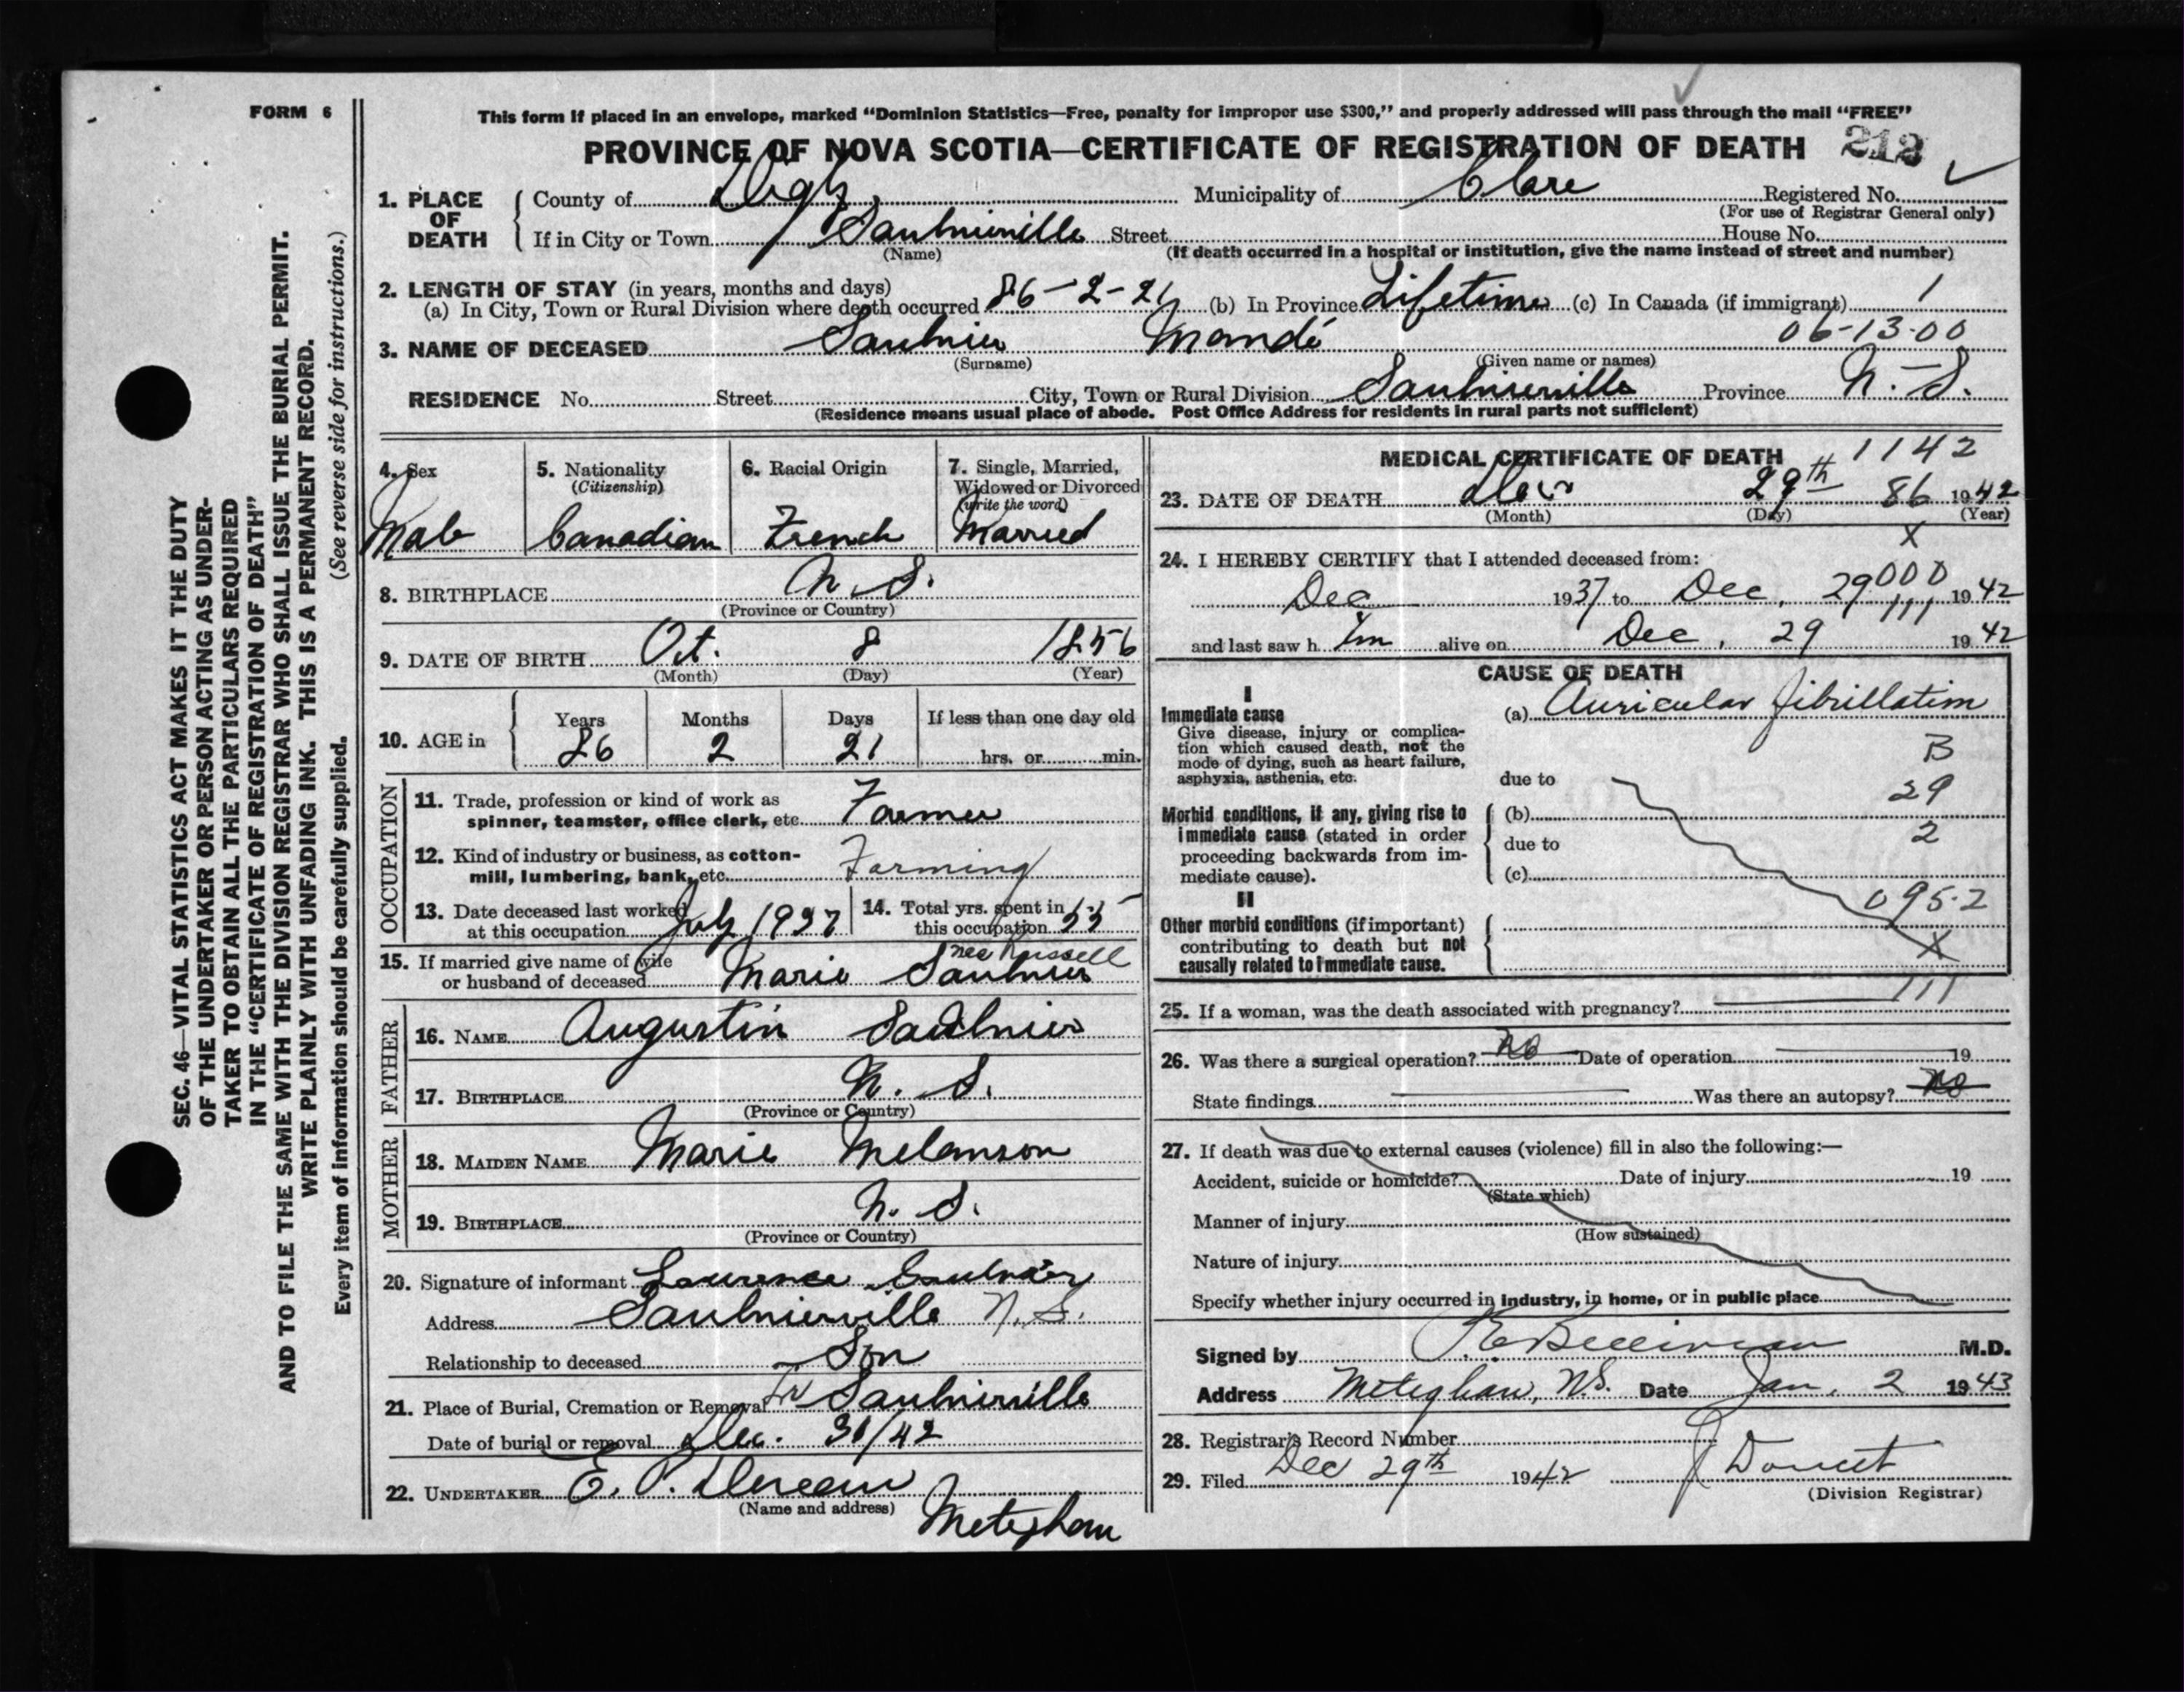 FORM 6
This form if placed in an envelope, marked "Dominion Statistics—Free, penalty for improper use $300," and properly addressed will pass through the mail "FREE"
PROVINCE OF NOVA SCOTIA—CERTIFICATE OF REGISTRATION OF DEATH 212
1. PLACE OF DEATH
County of Digby Municipality of Clare Registered No.
(For use of Registrar General only)
If in City or Town Saulnierville Street House No.
(Name) (If death occurred in a hospital or institution, give the name instead of street and number)
2. LENGTH OF STAY (in years, months and days)
(a) In City, Town or Rural Division where death occurred 86-2-21 (b) In Province Lifetime (c) In Canada (if immigrant) 1
06-13-00
3. NAME OF DECEASED Saulnier Mandé
(Surname) (Given name or names)
RESIDENCE No. Street City, Town or Rural Division Saulnierville Province N.S.
(Residence means usual place of abode. Post Office Address for residents in rural parts not sufficient)
4. Sex
Male
5. Nationality
(Citizenship)
Canadian
6. Racial Origin
French
7. Single, Married,
Widowed or Divorced
(write the word)
Married
8. BIRTHPLACE N.S.
(Province or Country)
9. DATE OF BIRTH Oct. 8 1856
(Month) (Day) (Year)
10. AGE in
Years Months Days If less than one day old
86 2 21 hrs. or min.
OCCUPATION
11. Trade, profession or kind of work as
spinner, teamster, office clerk, etc. Farmer
12. Kind of industry or business, as cotton-
mill, lumbering, bank, etc. Farming
13. Date deceased last worked
at this occupation July 1937
14. Total yrs. spent in
this occupation 55
15. If married give name of wife nee Russell
or husband of deceased Marie Saulnier
FATHER
16. NAME Augustin Saulnier
17. BIRTHPLACE N.S.
(Province or Country)
MOTHER
18. MAIDEN NAME Marie Melanson
19. BIRTHPLACE N.S.
(Province or Country)
20. Signature of informant Laurence Saulnier
Address Saulnierville N.S.
Relationship to deceased Son
21. Place of Burial, Cremation or Removal Saulnierville
Date of burial or removal Dec. 31/42
22. UNDERTAKER E. P.
(Name and address) Meteghan
MEDICAL CERTIFICATE OF DEATH 1142
23. DATE OF DEATH Dec 29th 86 1942
(Month) (Day) (Year)
X
24. I HEREBY CERTIFY that I attended deceased from:
000
Dec 1937 to Dec. 29 1942
111
and last saw h im alive on Dec, 29 1942
CAUSE OF DEATH
I
Immediate cause (a) Auricular fibrillation
Give disease, injury or complica-
tion which caused death, not the
mode of dying, such as heart failure,
asphyxia, asthenia, etc. due to
B
29
Morbid conditions, if any, giving rise to (b)
immediate cause (stated in order due to 2
proceeding backwards from im-
mediate cause). (c)
II 095.2
Other morbid conditions (if important)
contributing to death but not X
causally related to immediate cause.
111
25. If a woman, was the death associated with pregnancy?
26. Was there a surgical operation? No Date of operation 19
State findings Was there an autopsy? No
27. If death was due to external causes (violence) fill in also the following:—
Accident, suicide or homicide? Date of injury 19
(State which)
Manner of injury
(How sustained)
Nature of injury
Specify whether injury occurred in industry, in home, or in public place
Signed by M.D.
Address Meteghan, N.S. Date Jan. 2 1943
28. Registrar's Record Number
29. Filed Dec 29th 1942 J Doucet
(Division Registrar)
SEC. 46—VITAL STATISTICS ACT MAKES IT THE DUTY
OF THE UNDERTAKER OR PERSON ACTING AS UNDER-
TAKER TO OBTAIN ALL THE PARTICULARS REQUIRED
IN THE "CERTIFICATE OF REGISTRATION OF DEATH"
AND TO FILE THE SAME WITH THE DIVISION REGISTRAR WHO SHALL ISSUE THE BURIAL PERMIT.
WRITE PLAINLY WITH UNFADING INK. THIS IS A PERMANENT RECORD.
Every item of information should be carefully supplied. (See reverse side for instructions.)